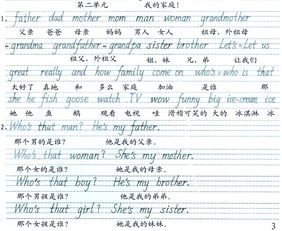 第二单元 我的家庭!
1. father dad mother mom man woman grandmother
父亲 爸爸 母亲 妈妈 男人 女人 祖母,外祖母
=grandma grandfather=grandpa sister brother Let's=Let us
祖父,外祖父 姐、妹 兄、弟 让我们
great really and how family come on who's=who is that
太好了 真地 和 多么 家庭 加油 是谁 那
she he fish goose watch TV wow funny big ice-cream ice
她 他 鱼 鹅 观看 电视 哇 滑稽可笑的 大的 冰淇淋 冰
2. Who's that man? He's my father.
那个男的是谁? 他是我的父亲。
Who's that woman? She's my mother.
那个女的是谁? 她是我的母亲。
Who's that boy? He's my brother.
那个男孩是谁? 他是我的弟弟。
Who's that girl? She's my sister.
那个女孩是谁? 她是我的妹妹。
3